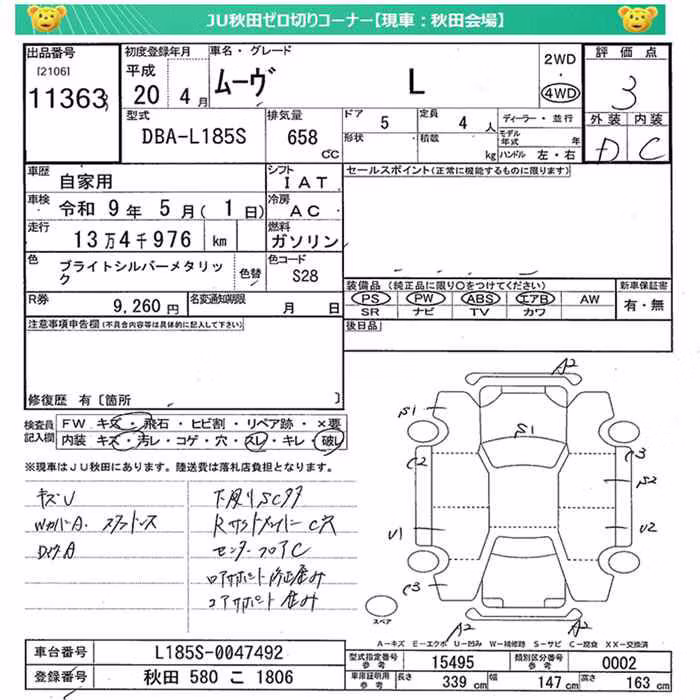 JU秋田ゼロ切りコーナー【現車:秋田会場】
出品番号
[2106]
11363
初度登録年月
平成
20 4月
車名・グレード
ムーヴ L
2WD
・
4WD
評価点
3
外装 内装
D C
型式
DBA-L185S
排気量
658 cc
ドア 5
定員 4 人
形状
積載 kg
ディーラー・並行
モデル年式 年
ハンドル 左・右
車歴 自家用
シフト IAT
車検 令和 9年 5月( 1日)
冷房 AC
走行 13万4千976 km
燃料 ガソリン
色 ブライトシルバーメタリック
色替
色コード S28
R券 9,260円
名変通知期限 月 日
セールスポイント(正常に機能するものに限ります)
装備品(純正品に限り○をつけてください)
PS PW ABS エアB AW
SR ナビ TV カワ
新車保証書
有・無
後日品
注意事項申告欄(不具合内容等は具体的に記入して下さい)
修復歴 有〔箇所 〕
検査員記入欄
FW キズ・飛石・ヒビ割・リペア跡・×要
内装 キズ・汚レ・コゲ・穴・スレ・キレ・破レ
※現車はJU秋田にあります。陸送費は落札店負担となります。
キズU
下廻りSCサ
センターフロアC
A2
S1
S1
C2
C3
S2
U1
U2
C3
A2
A2
スペア
A-キズ E-エクボ U-凹み W-補修跡 S-サビ C-腐食 XX-交換済
車台番号 L185S-0047492
登録番号 秋田 580 こ 1806
型式指定番号参考 15495
類別区分番号参考 0002
車庫証明用参考 長さ 339 cm 幅 147 cm 高さ 163 cm